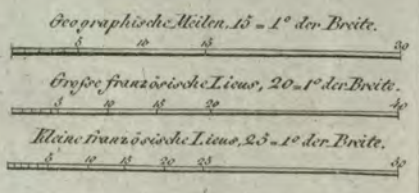 Geographische Meilen, 15 = 1° der Breite.
5 10 15 30
Große französische Lieus, 20 = 1° der Breite.
5 10 15 20 40
Kleine französische Lieus, 25 = 1° der Breite.
5 10 15 20 25 50